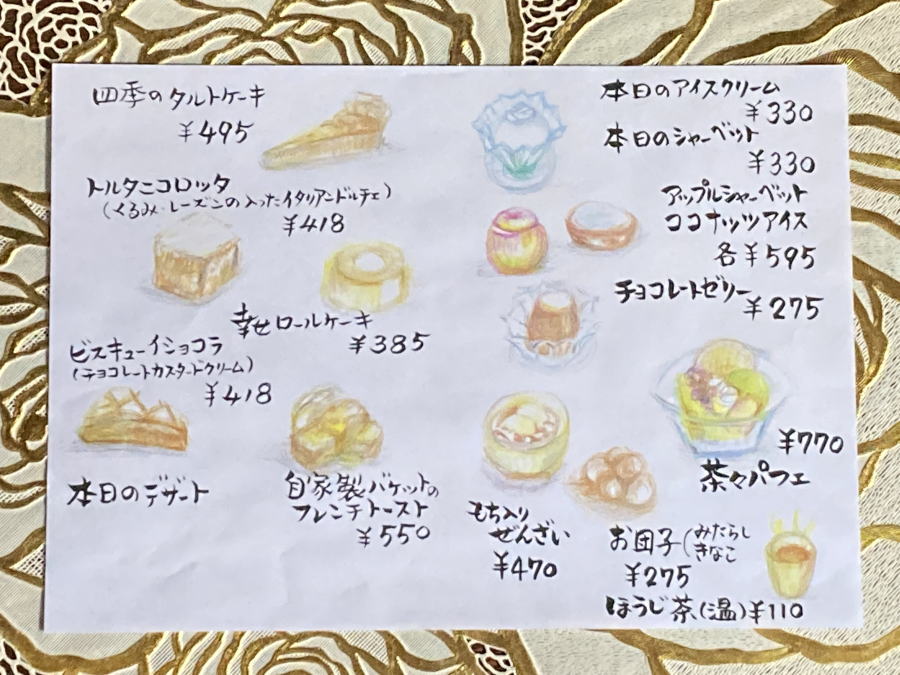 四季のタルトケーキ
¥495
トルタニコロッタ
(くるみ・レーズンの入ったイタリアンドルチェ)
¥418
幸せロールケーキ
¥385
ビスキューイショコラ
(チョコレートカスタードクリーム)
¥418
本日のデザート
自家製バケットの
フレンチトースト
¥550
本日のアイスクリーム
¥330
本日のシャーベット
¥330
アップルシャーベット
ココナッツアイス
各¥595
チョコレートゼリー
¥275
¥770
茶々パフェ
もち入り
ぜんざい
¥470
お団子(みたらし
きなこ
¥275
ほうじ茶(温)¥110